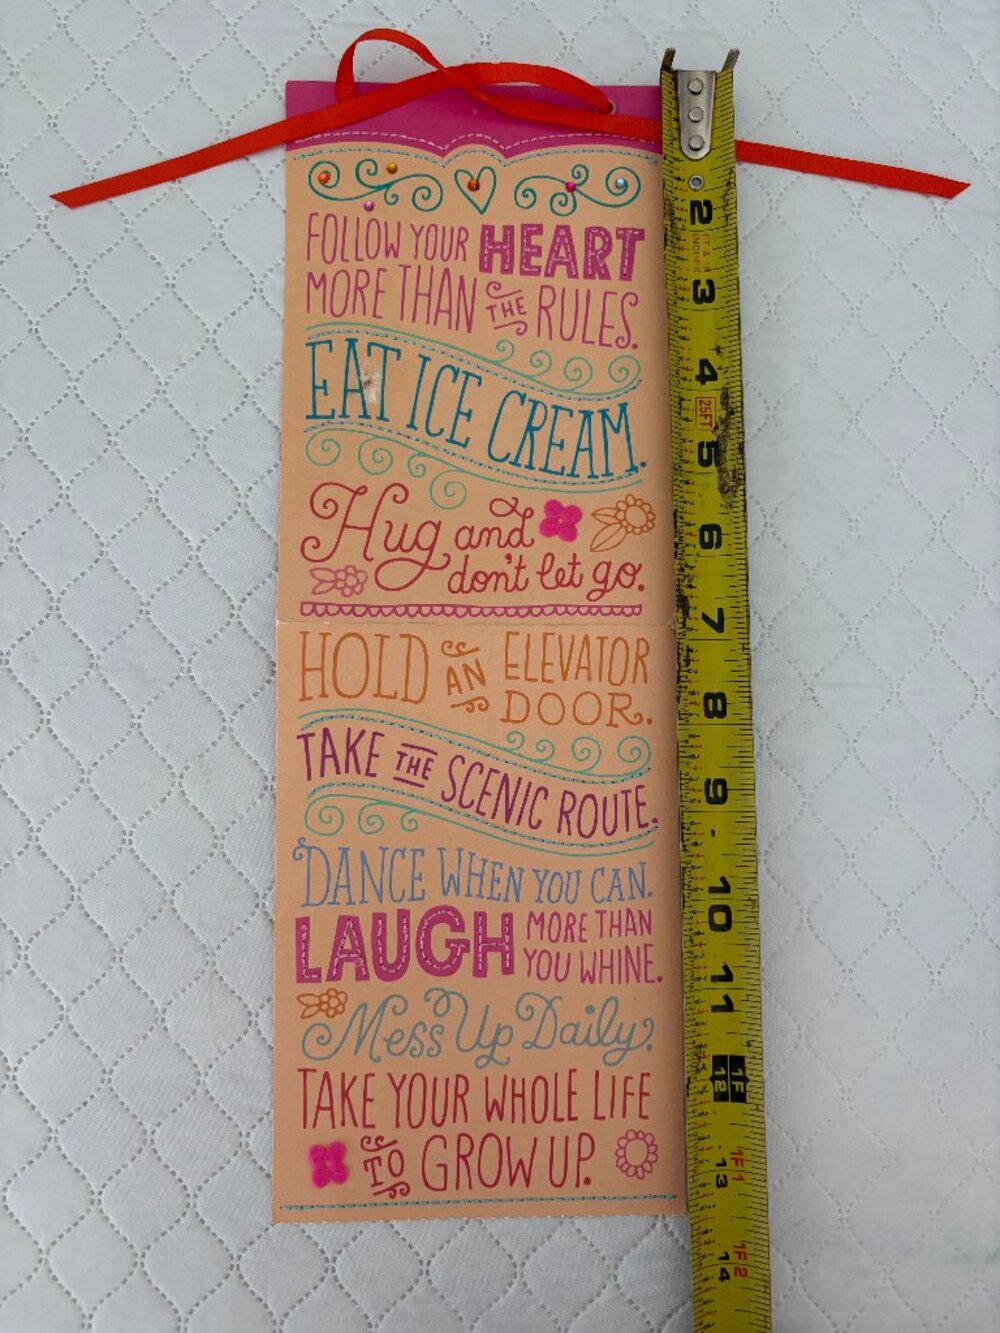 FOLLOW YOUR HEART
MORE THAN THE RULES.
EAT ICE CREAM.
Hug and
don't let go.
HOLD AN ELEVATOR
DOOR.
TAKE THE SCENIC ROUTE.
DANCE WHEN YOU CAN.
LAUGH MORE THAN
YOU WHINE.
Mess Up Daily.
TAKE YOUR WHOLE LIFE
TO GROW UP.
2
3
4
25FT
5
6
7
8
9
10
11
1F
12
1F1
13
1F2
14